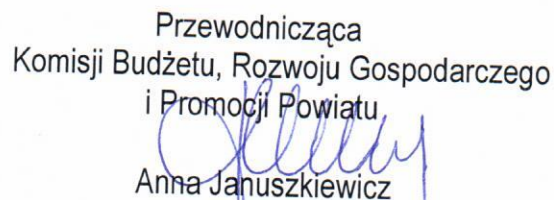 Przewodnicząca
Komisji Budżetu, Rozwoju Gospodarczego
i Promocji Powiatu
Anna Januszkiewicz